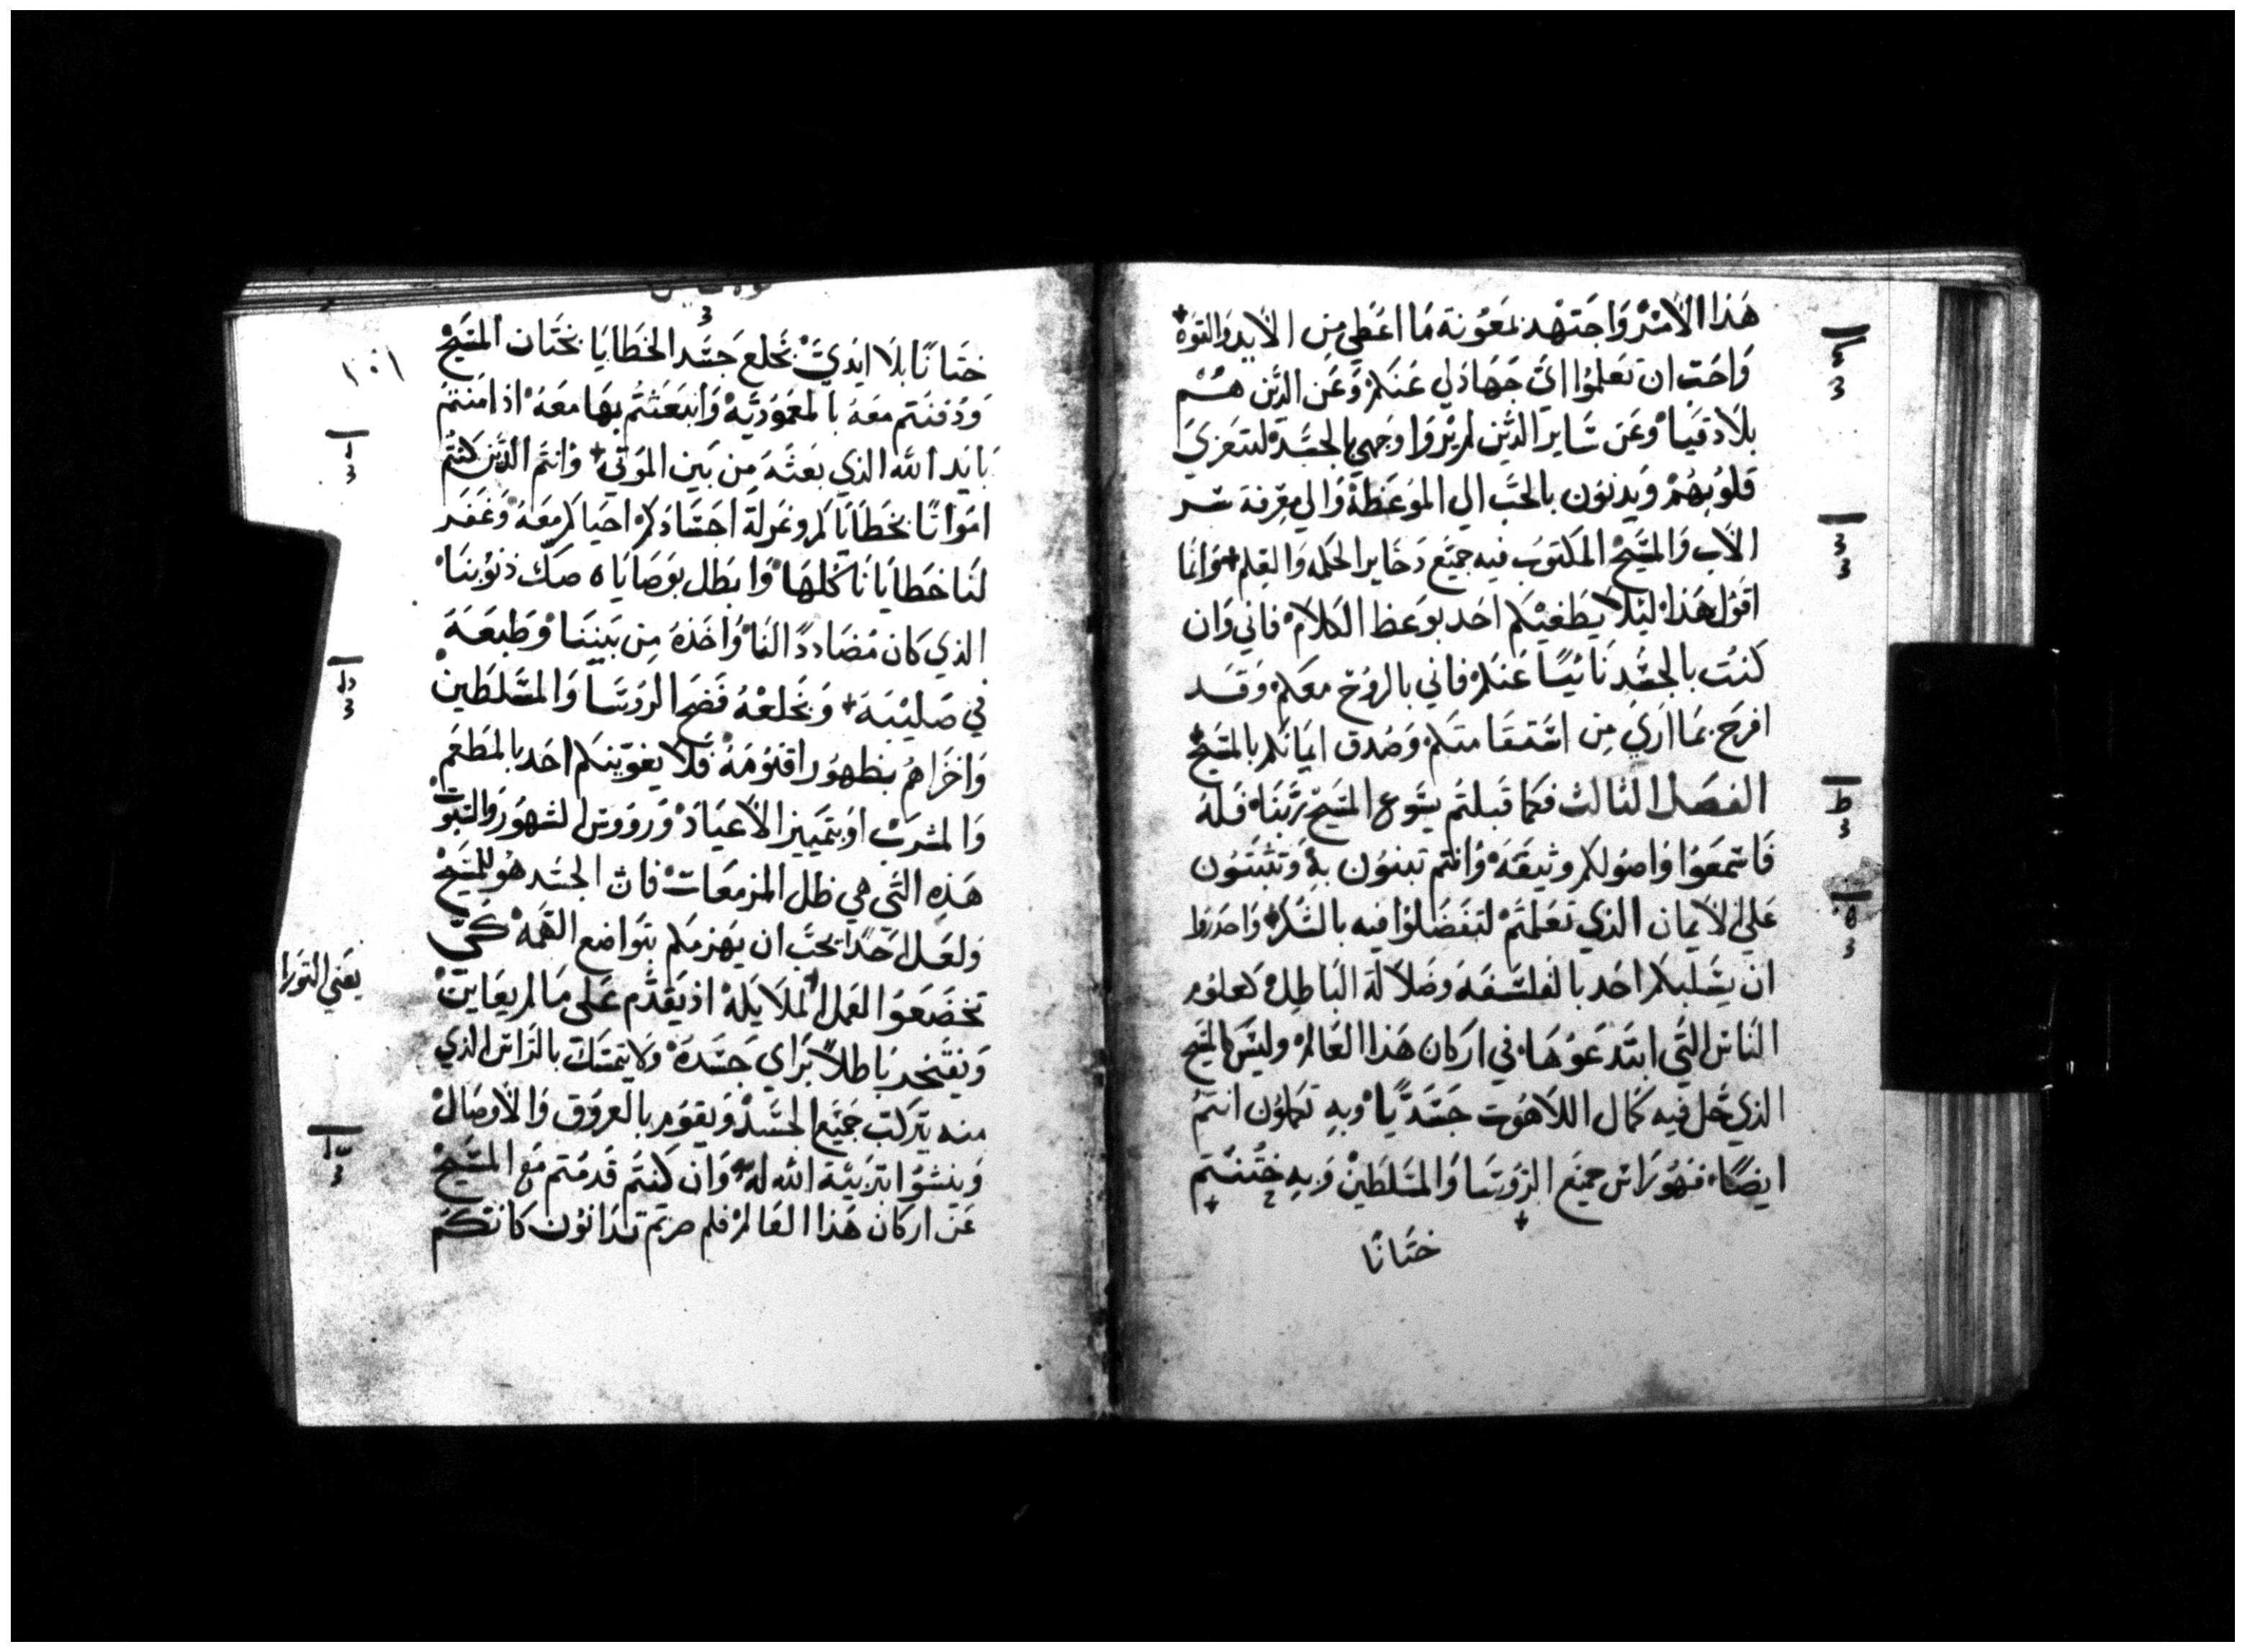 هَذا الاَمْر وَاجتهْد بمعُونة مَا اعَطِي مِن الايد وَالقوة
وَاحَبّ ان تعَلمُوا ايّ جَهَاد لي عَنكم وَعَن الذين هُم
بلادقيا وعَن سَاير الذين لم يرَوا وَجهي بالجسَد لتتعزي
قلوُبهُم وَيدنوُن بالحَب الي الموُعَظة وَالي معرفة سر
الاب وَالمسَيح المكتوُب فيه جميَع دخاير الحكمه وَالعِلم وانما
اقوُل هَذا ليَلا يطغيْكم احَد بوَعظ الكلاَم فاني وَان
كنت بالجسَد نائيًا عَنكم فاني بالروُح معَكم وَقد
افرَح بمَا اري مِن استقامتكم وَصُدق ايمانكم بالمسَيح
الفصَل الثالث فكما قبلتم يسُوع المسيح ربنَا فله
فَاسمعَوا وَاصُولكم وثيقة وَانتم تبنوُن به وَتثبتوُن
عَلي الايمان الذي تعَلمتم لتفضَلوُا فيه بالشكر وَاحدروا
ان يسَلبكم احَد بالفلسَفة وضَلالة البَاطِل كعلوُم
النَاس التي ابتدعَوُهَا في اركان هَذا العَالم وليسَ كالمسيح
الذي حَل فيه كمال اللاهُوت جسَديًا وبهِ تكملوُن انتمُ
ايضًا فهُو رَاس جميَع الروُسَا وَالمسَلطين وَبهِ ختنتم
ختَانًا
١٠١
ختَانًا بلا ايَدي بخَلع جسَد الخطَايَا بختَان المسَيح
وَدُفنتم معَه بالمعَموُديه وَانبعَثتم بهَا معَهُ اذ امنتم
بايد الله الذي بَعثَه مِن بَين الموَتي وَانتم الذين كنتُم
امَوَاتًا بخَطايَاكم وغرلة اجسَادكم احيَاكم معَهُ وَغفَر
لنَا خَطايَانا كلهَا وَابطَل بوَصَاياه صَك ذنوُبنَا
الذي كان مُضَاددًا لنَا وَاخَذهُ مِن بَيننَا وَطبعَهُ
في صَليبَه وَبخلعْهُ فضَح الروُسَا وَالمسَلطَين
وَاخزَاهمُ بظهُور اقنوُمَهُ فلا يغوّينكم احَد بالمَطعَم
وَالمشَرَب اوُ بتمييَز الاعيَاد وَروُوسَ الشهُور وَالسبوت
هَذِه التي هي ظل المزمعَات فان الجسَد هُو المسَيح
وَلعَل احَدًا يحبّ ان يهَزمكم بتوَاضع الهمَه كيَ
تخضَعَوا لعَمل الملايكة اذ يقدم عَلي مَا لم يعَاين
يعَني التورا
وَيفتخر بَاطلاً برَاي جسَدهَ وَلا يتمسَك بالرَاس الذي
منه يتركب جميَع الجسَد وَيقوُم بالعروُق وَالاوصَال
وَينشوُا بتربيَة الله له وَان كنتم قدمُتم مَع المسَيح
عَن اركان هَذا العَالم فلم صرتم تدَانوُن كانكم